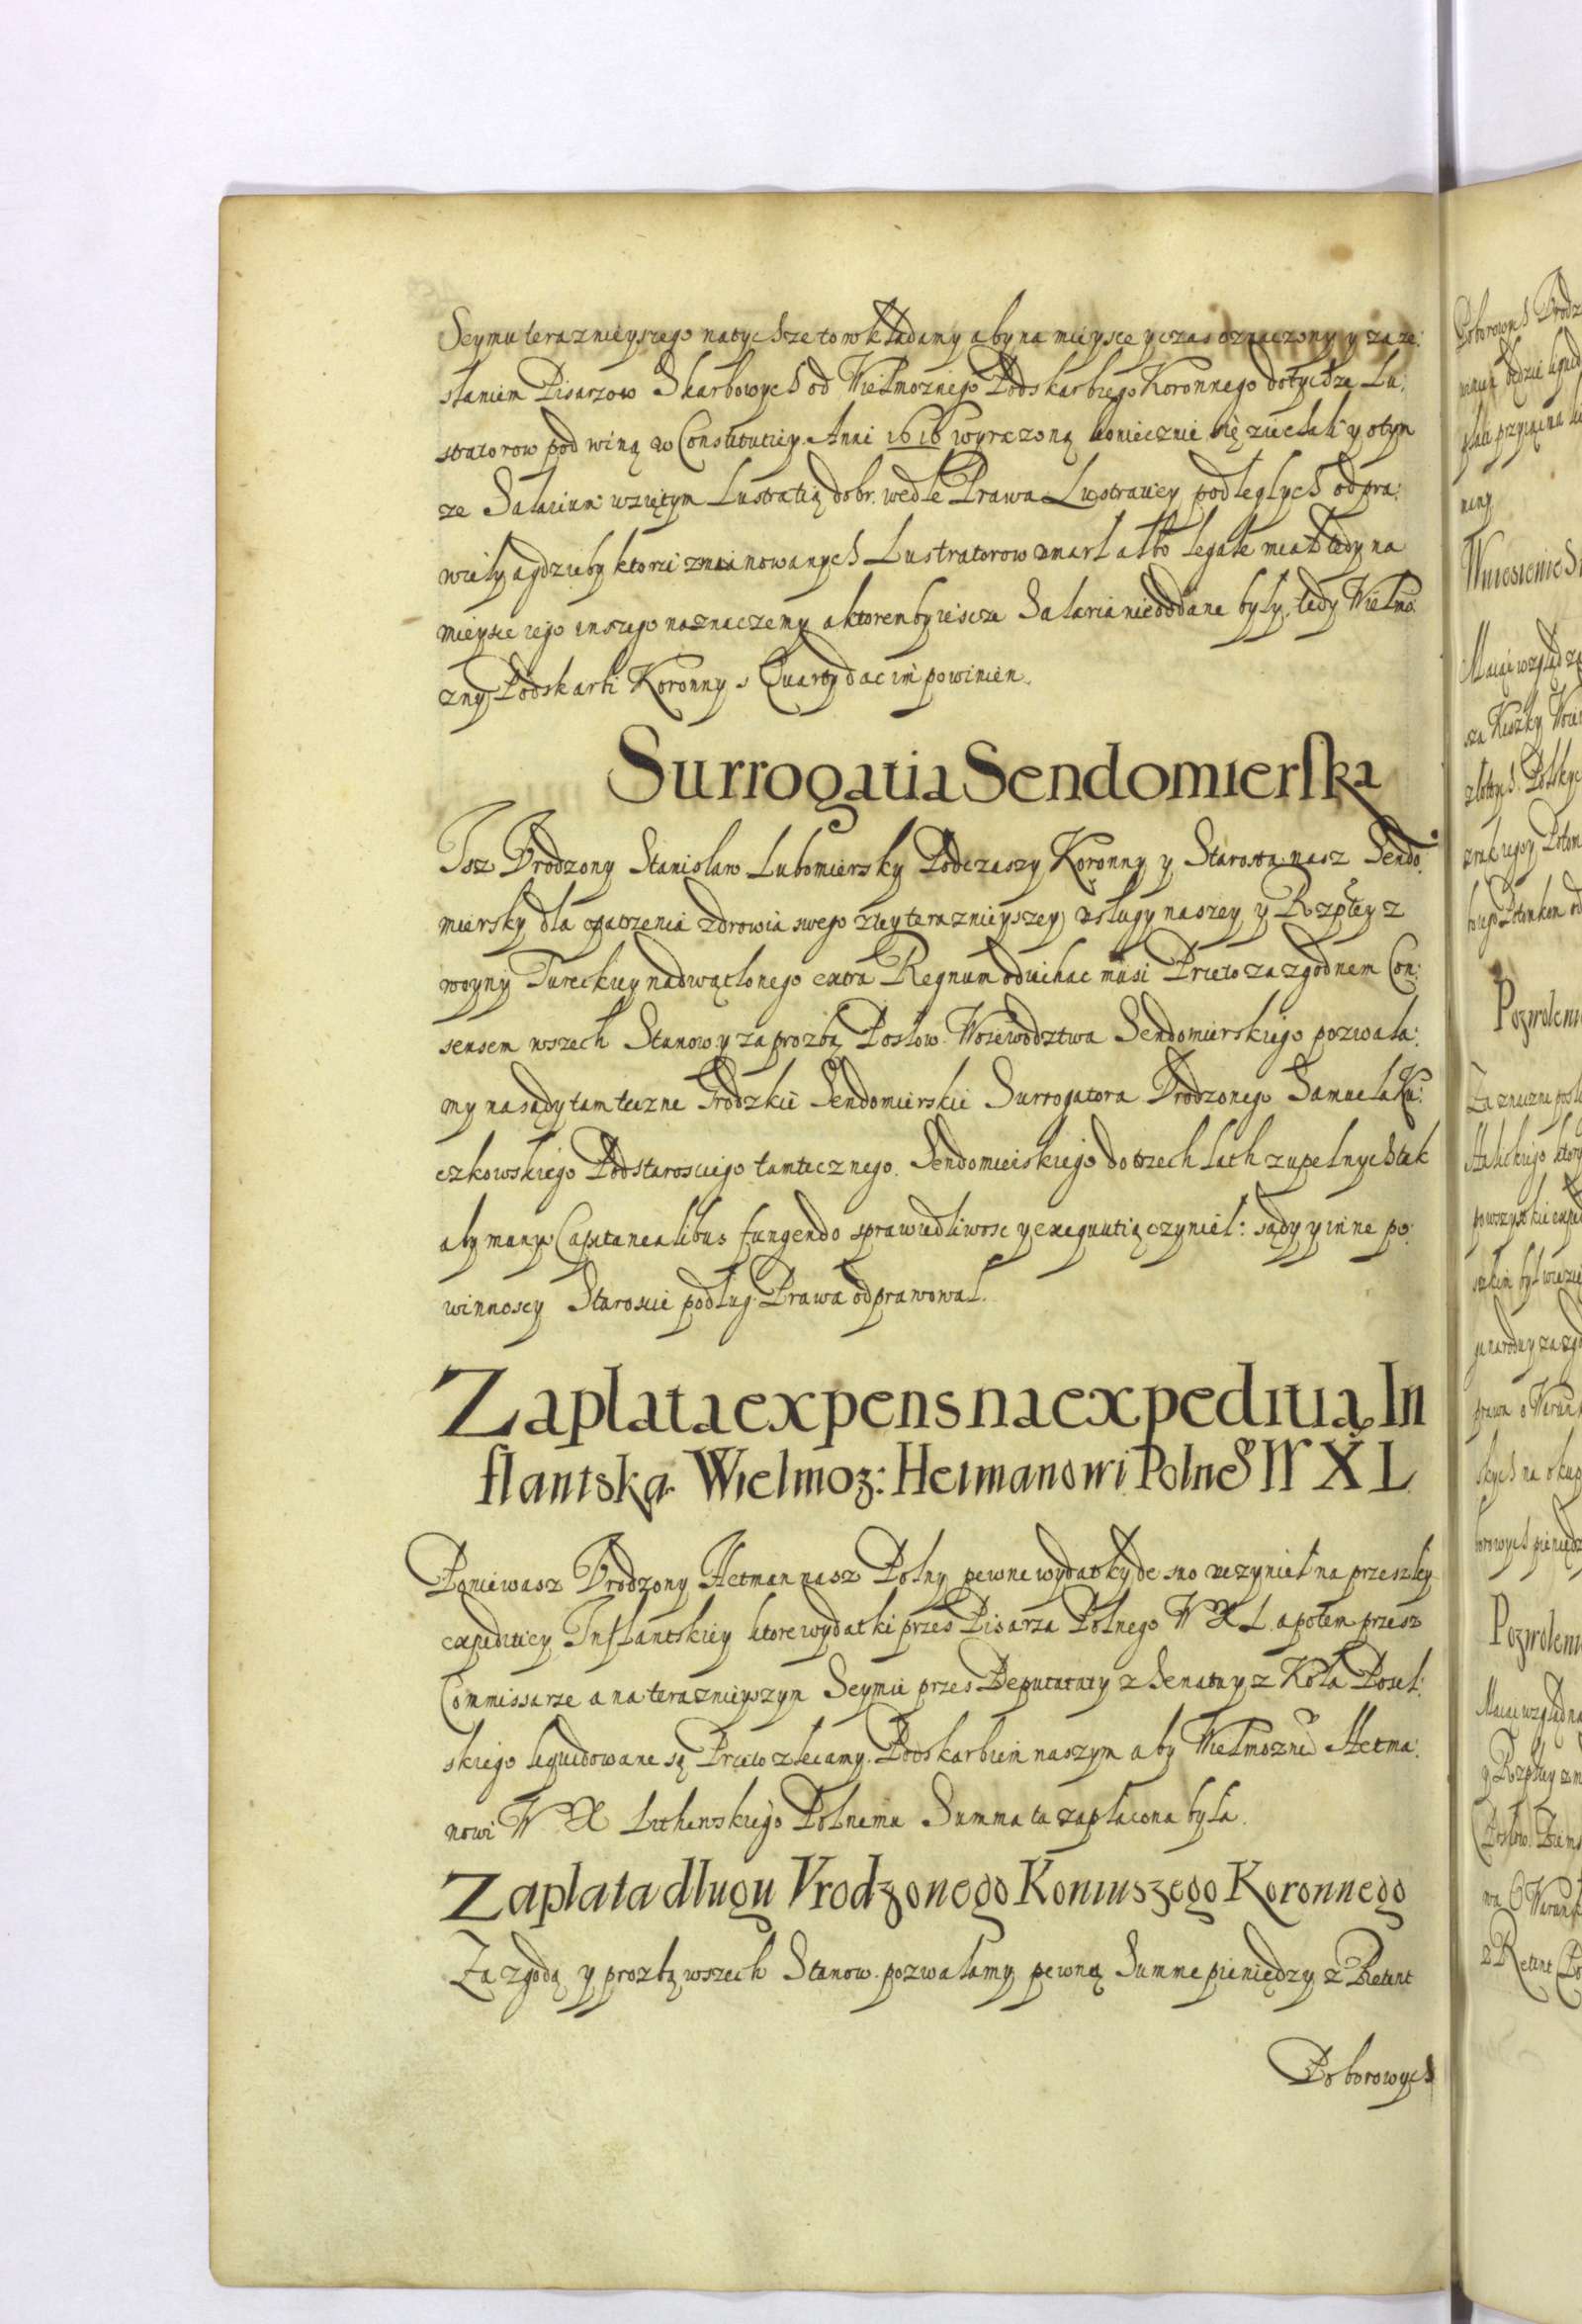 Seymu teraznieyszego na tychsze to wkładamy aby na mieysce y czas oznaczony y za ze:
słaniem Pisarzow Skarbowych od Wielmoznego Podskarbiego Koronnego do tychze Lu:
stratorow pod winą w Constitutiey Anni 1616 wyrażoną koniecznie się ziechali y o tym
ze Salarium wziętym Lustratią dobr wedle Prawa Lustratiey podległych odpra:
wiely a gdzieby ktori z mianowanych Lustratorow umarł albo legale miał tedy na
mieysce iego inszego naznaczemy a ktorenby ieszcze Salaria nieoddane były, tedy Wielmo
zny Podskarbi Koronny s Quarty dac im powinien.
Surrogatia Sendomierska
Isz Urodzony Stanisław Lubomiersky Podczaszy Koronny y Starosta nasz Sendo:
miersky dla opatrzenia zdrowia swego z tey teraznieyszey usługy naszey y Rzptey z
woyny Tureckiey nadwątlonego extra Regnum odiechac musi Przeto za zgodnem Con:
sensem wszech Stanow y za prozbą Posłow Woiewodztwa Sendomierskiego pozwala:
my na sądy tamteczne Grodzkie Sendomierskie Surrogatora Urodzonego Samuela
czkowskiego Podstarosciego tamtecznego Sendomierskiego do trzech lath zupełnych tak
aby munere Capitanealibus fungendo sprawiedliwosc y exequutią czynieł: sądy y inne po
winnoscy Staroscie podług Prawa odprawował.
Zaplata expens na expeditią In
flantską Wielmoz: Hetmanowi Polne° W X L
Poniewasz Urodzony Hetman nasz Polny pewne wydatky de suo uczynieł na przeszłey
expeditiey Inflantskiey ktore wydatki przes Pisarza Polnego W X L a potem przesz
Commissarze a na teraznieyszym Seymie przes Deputataty z Senatu y z Koła Posel:
skiego liquidowane są Przeto zlecamy Podskarbiem naszym aby Wielmożne° Hetma:
nowi W X Lithewskiego Polnemu Summa ta zapłacona była.
Zaplata dlugu Vrodzonego Koniuszego Koronnego
Za zgodą y prozbą wszech Stanow pozwalamy pewną Summe pieniędzy z Retent
Poborowych